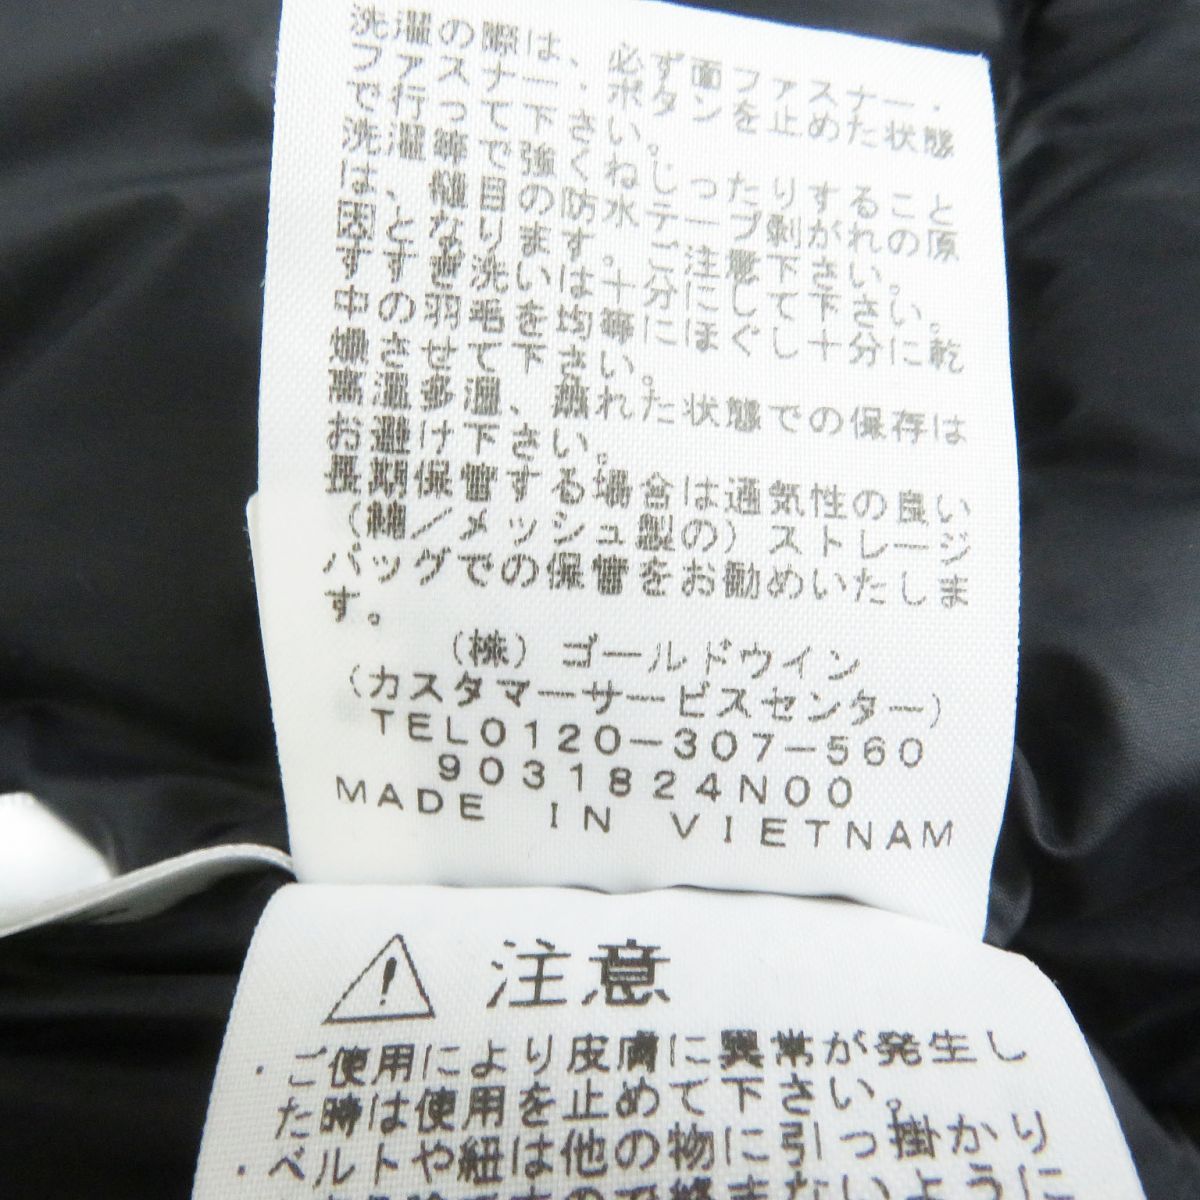 洗濯の際は、必ず面ファスナー・
ファスナー・ボタンを止めた状態
で行って下さい。
洗濯等で強くねじったりすること
は、縫目の防水テープ剥がれの原
因となります。ご注意下さい。
すすぎ洗いは十分にして下さい。
中の羽毛を均等にほぐし十分に乾
燥させて下さい。
高温多湿、蒸れた状態での保存は
お避け下さい。
長期保管する場合は通気性の良い
(綿/メッシュ製の)ストレージ
バッグでの保管をお勧めいたしま
す。
(株)ゴールドウイン
(カスタマーサービスセンター)
TEL0120-307-560
9031824N00
MADE IN VIETNAM
注意
・ご使用により皮膚に異常が発生し
た時は使用を止めて下さい。
・ベルトや紐は他の物に引っ掛かり
ないように